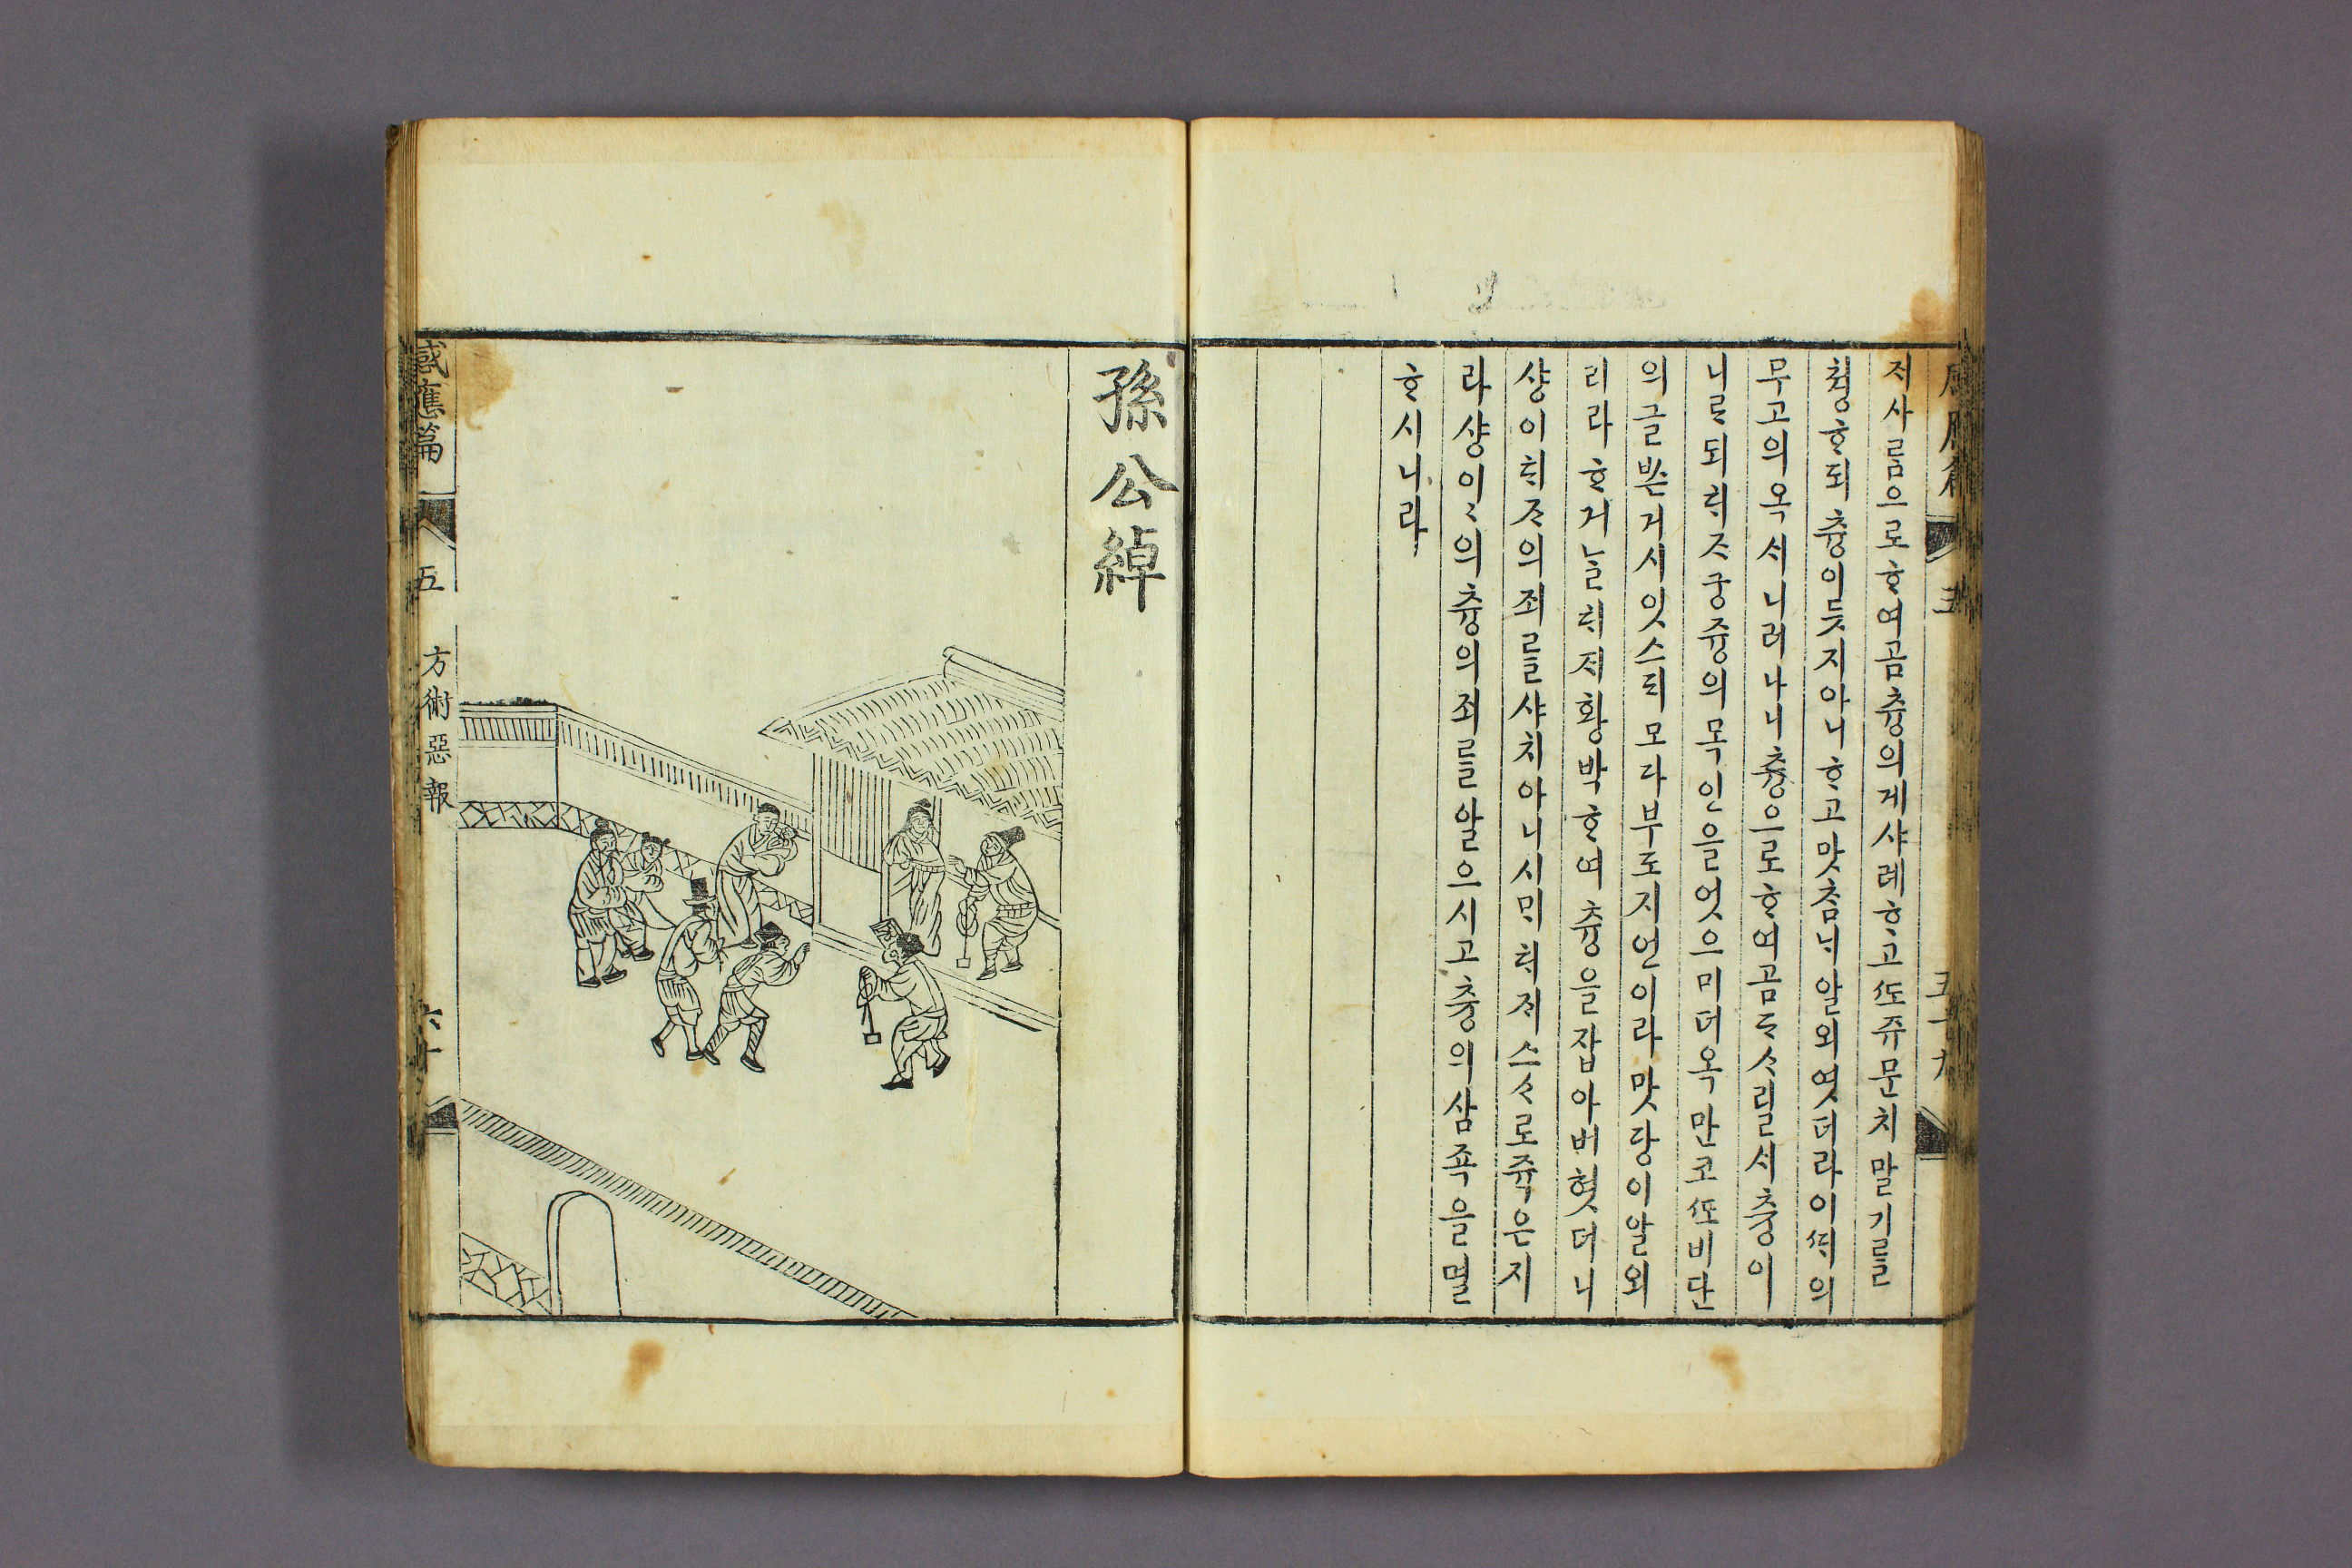 져사ᄅᆞᆷ으로ᄒᆞ여곰츙의게샤례ᄒᆞ고ᄯᅩ쥬문치말기를
쳥ᄒᆞ되츙이듯지아니ᄒᆞ고맛ᄎᆞᆷᄂᆡ알외엿더라이ᄯᆡ의
무고의옥ᄉᆡ니러나니츙으로ᄒᆞ여곰ᄃᆞᄉᆞ릴ᄉᆡ츙이
니르되ᄐᆡᄌᆞ궁즁의목인을엇으미더옥만코ᄯᅩ비단
의글ᄡᅳᆫ거시잇스되모다부도지언이라맛당이알외
리라ᄒᆞ거ᄂᆞᆯᄐᆡᄌᆡ황박ᄒᆞ여츙을잡아버혓더니
샹이ᄐᆡᄌᆞ의죄를샤치아니시ᄆᆡᄐᆡᄌᆡ스ᄉᆞ로쥭은지
라샹이ᄂᆡ의츙의죄를알으시고츙의삼족을멸
ᄒᆞ시니라
孫公綽
感應篇 五 方術惡報 六十